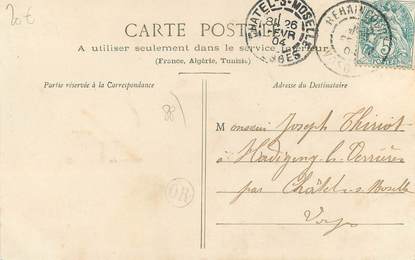 20€
CARTE POSTALE
CHATEL-S-MOSELLE
8 26
FEVR
04
VOSGES
A utiliser seulement dans le service intérieur
(France, Algérie, Tunisie.)
Partie réservée à la Correspondance
Adresse du Destinataire
88
Monsieur Joseph Thiriot
à Hadigny-les-Verrières
par Châtel-s-Moselle
Vosges
OR